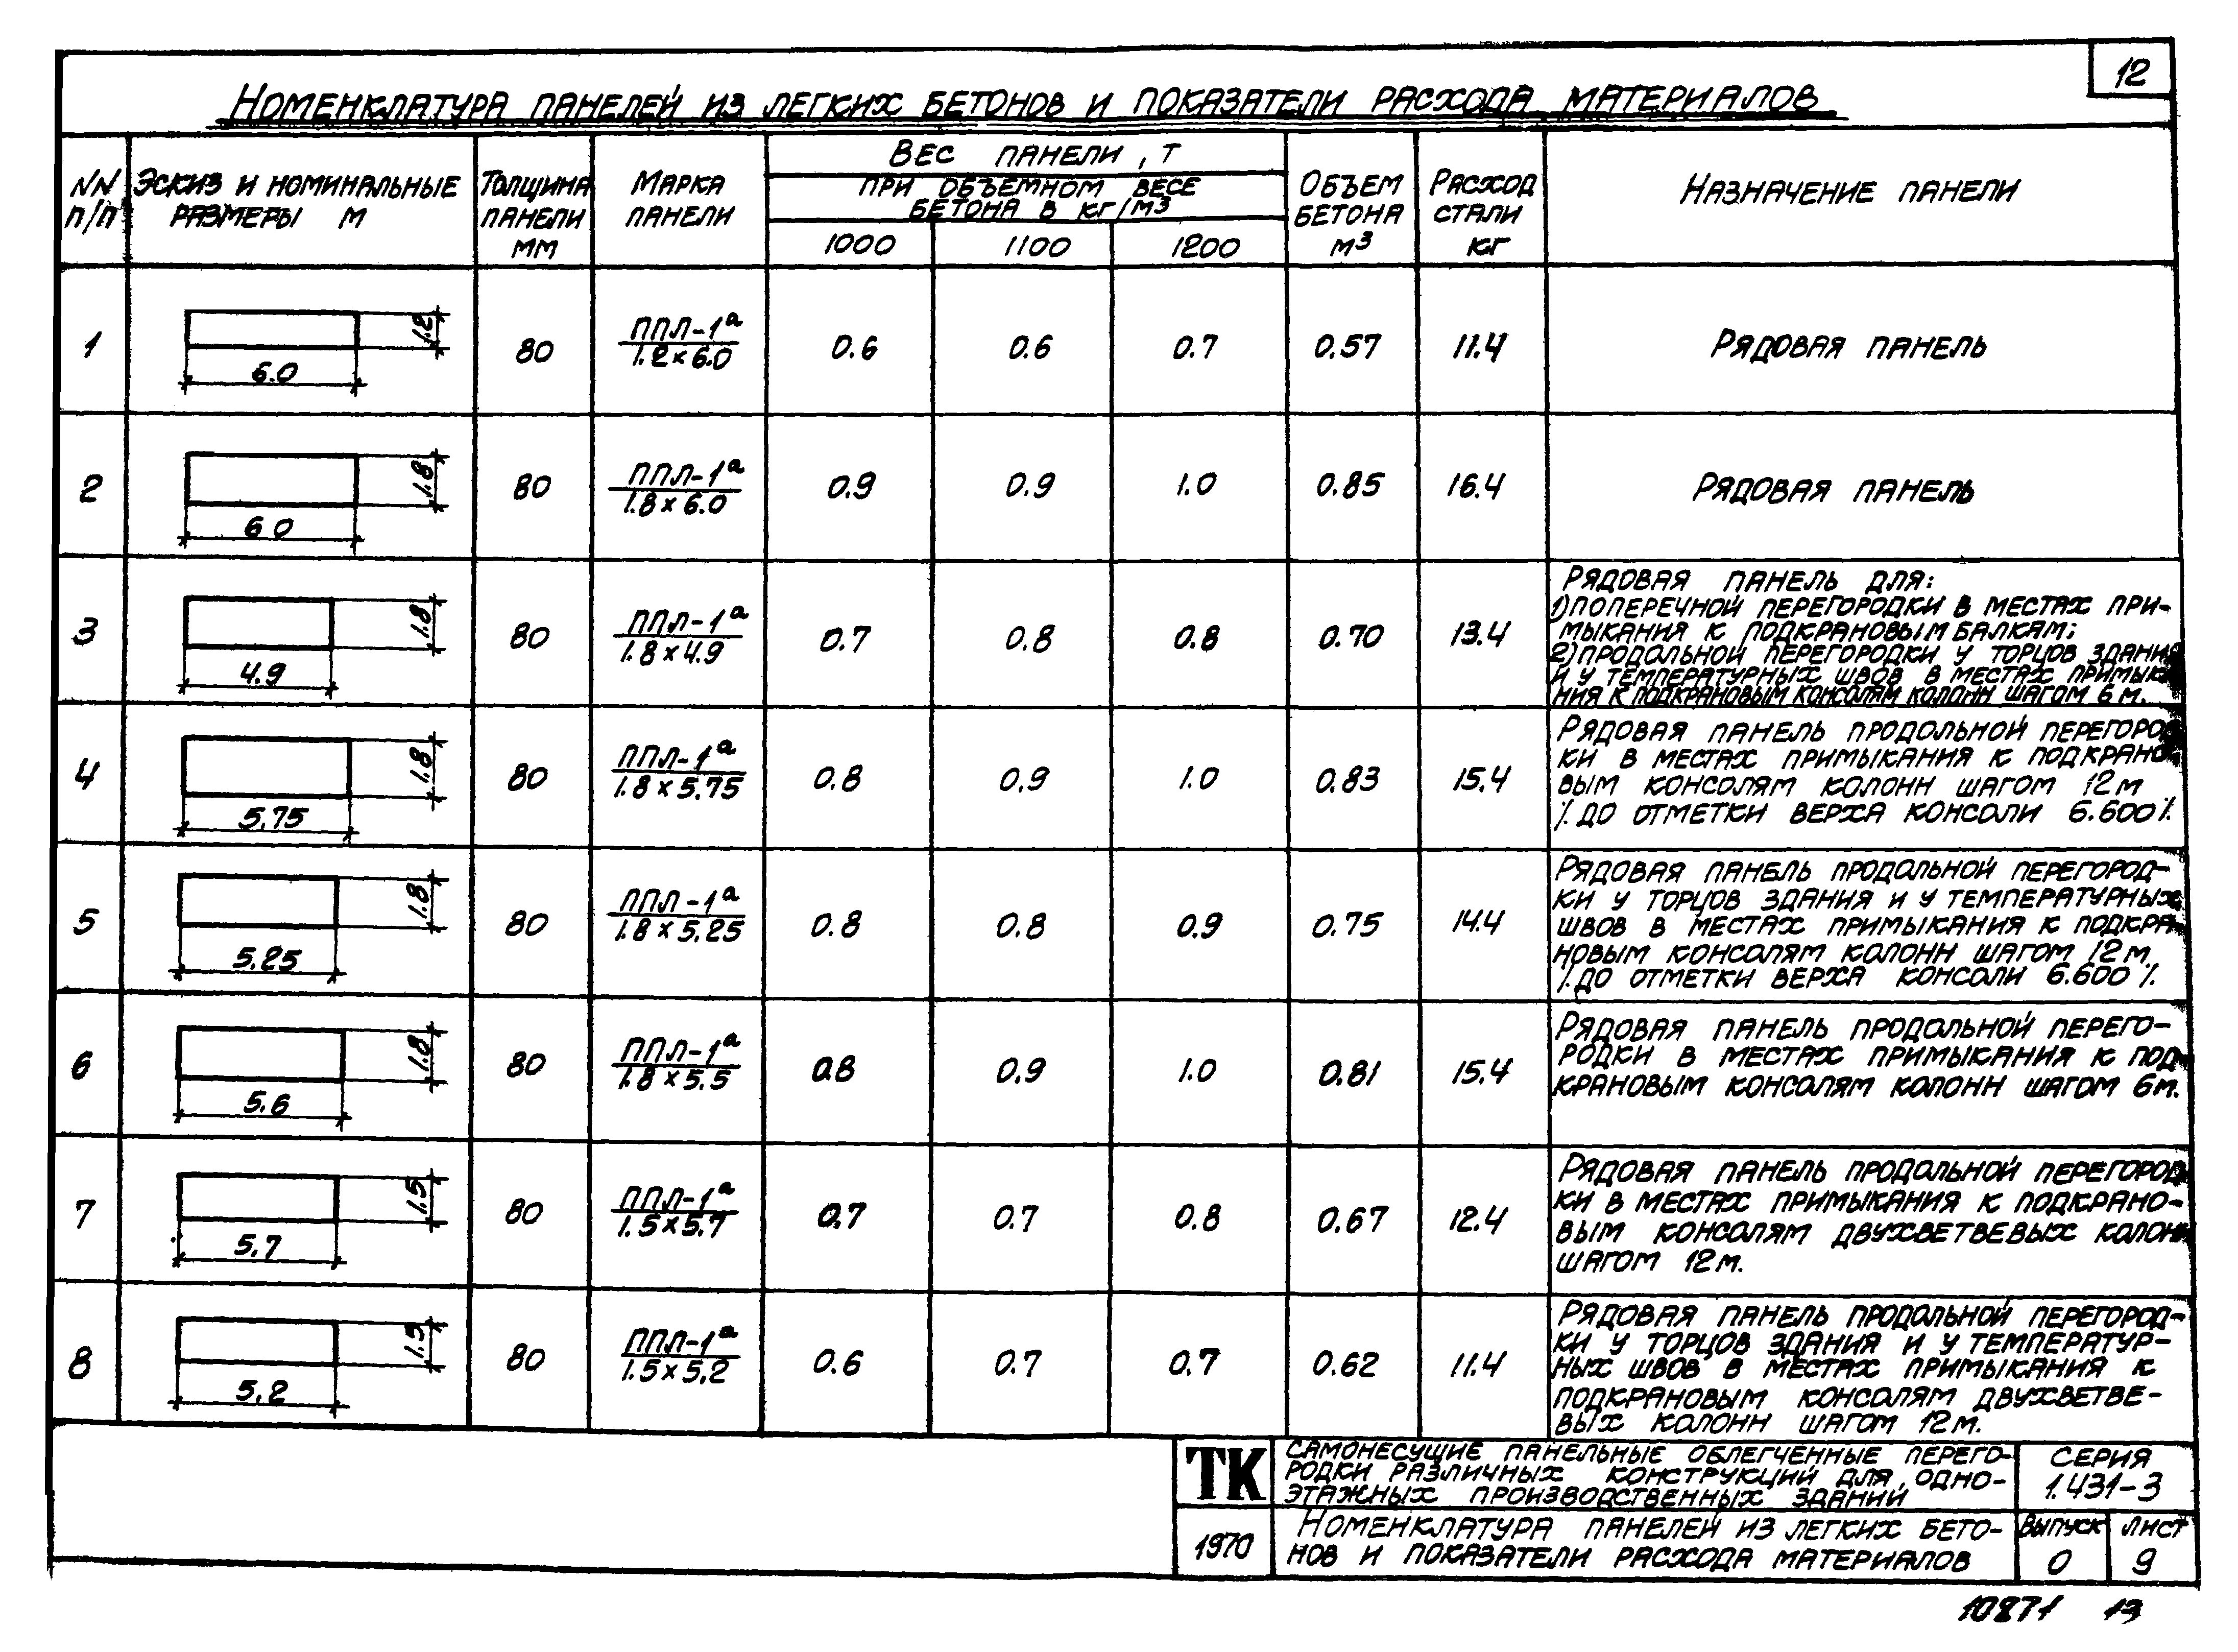 12
Номенклатура панелей из легких бетонов и показатели расхода материалов
NN п/п
Эскиз и номинальные размеры м
Толщина панели мм
Марка панели
Вес панели, т
при объемном весе
бетона в кг/м³
1000 1100 1200
Объем бетона м³
Расход стали кг
Назначение панели
1 1.2 6.0 80 ППЛ-1а 1.2×6.0 0.6 0.6 0.7 0.57 11.4 Рядовая панель
2 1.8 6 0 80 ППЛ-1а 1.8×6.0 0.9 0.9 1.0 0.85 16.4 Рядовая панель
3 1.8 4.9 80 ППЛ-1а 1.8×4.9 0.7 0.8 0.8 0.70 13.4
Рядовая панель для:
1) поперечной перегородки в местах при-
мыкания к подкрановым балкам;
2) продольной перегородки у торцов здания
и у температурных швов в местах примыка
ния к подкрановым консолям колонн шагом 6 м.
4 1.8 5.75 80 ППЛ-1а 1.8×5.75 0.8 0.9 1.0 0.83 15.4
Рядовая панель продольной перегород
ки в местах примыкания к подкрано
вым консолям колонн шагом 12 м
/.до отметки верха консоли 6.600/.
5 1.8 5.25 80 ППЛ-1а 1.8×5.25 0.8 0.8 0.9 0.75 14.4
Рядовая панель продольной перегород-
ки у торцов здания и у температурных
швов в местах примыкания к подкра-
новым консолям колонн шагом 12 м
/.до отметки верха консоли 6.600/.
6 1.8 5.6 80 ППЛ-1а 1.8×5.5 0.8 0.9 1.0 0.81 15.4
Рядовая панель продольной перего-
родки в местах примыкания к под
крановым консолям колонн шагом 6м.
7 1.5 5.7 80 ППЛ-1а 1.5×5.7 0.7 0.7 0.8 0.67 12.4
Рядовая панель продольной перегород
ки в местах примыкания к подкрано-
вым консолям двухветвевых колонн
шагом 12 м.
8 1.5 5.2 80 ППЛ-1а 1.5×5.2 0.6 0.7 0.7 0.62 11.4
Рядовая панель продольной перегород-
ки у торцов здания и у температур-
ных швов в местах примыкания к
подкрановым консолям двухветве-
вых колонн шагом 12 м.
ТК
самонесущие панельные облегченные перего-
родки различных конструкций для одно-
этажных производственных зданий
серия
1.431-3
1970
Номенклатура панелей из легких бето-
нов и показатели расхода материалов
выпуск
0
лист
9
10871 13